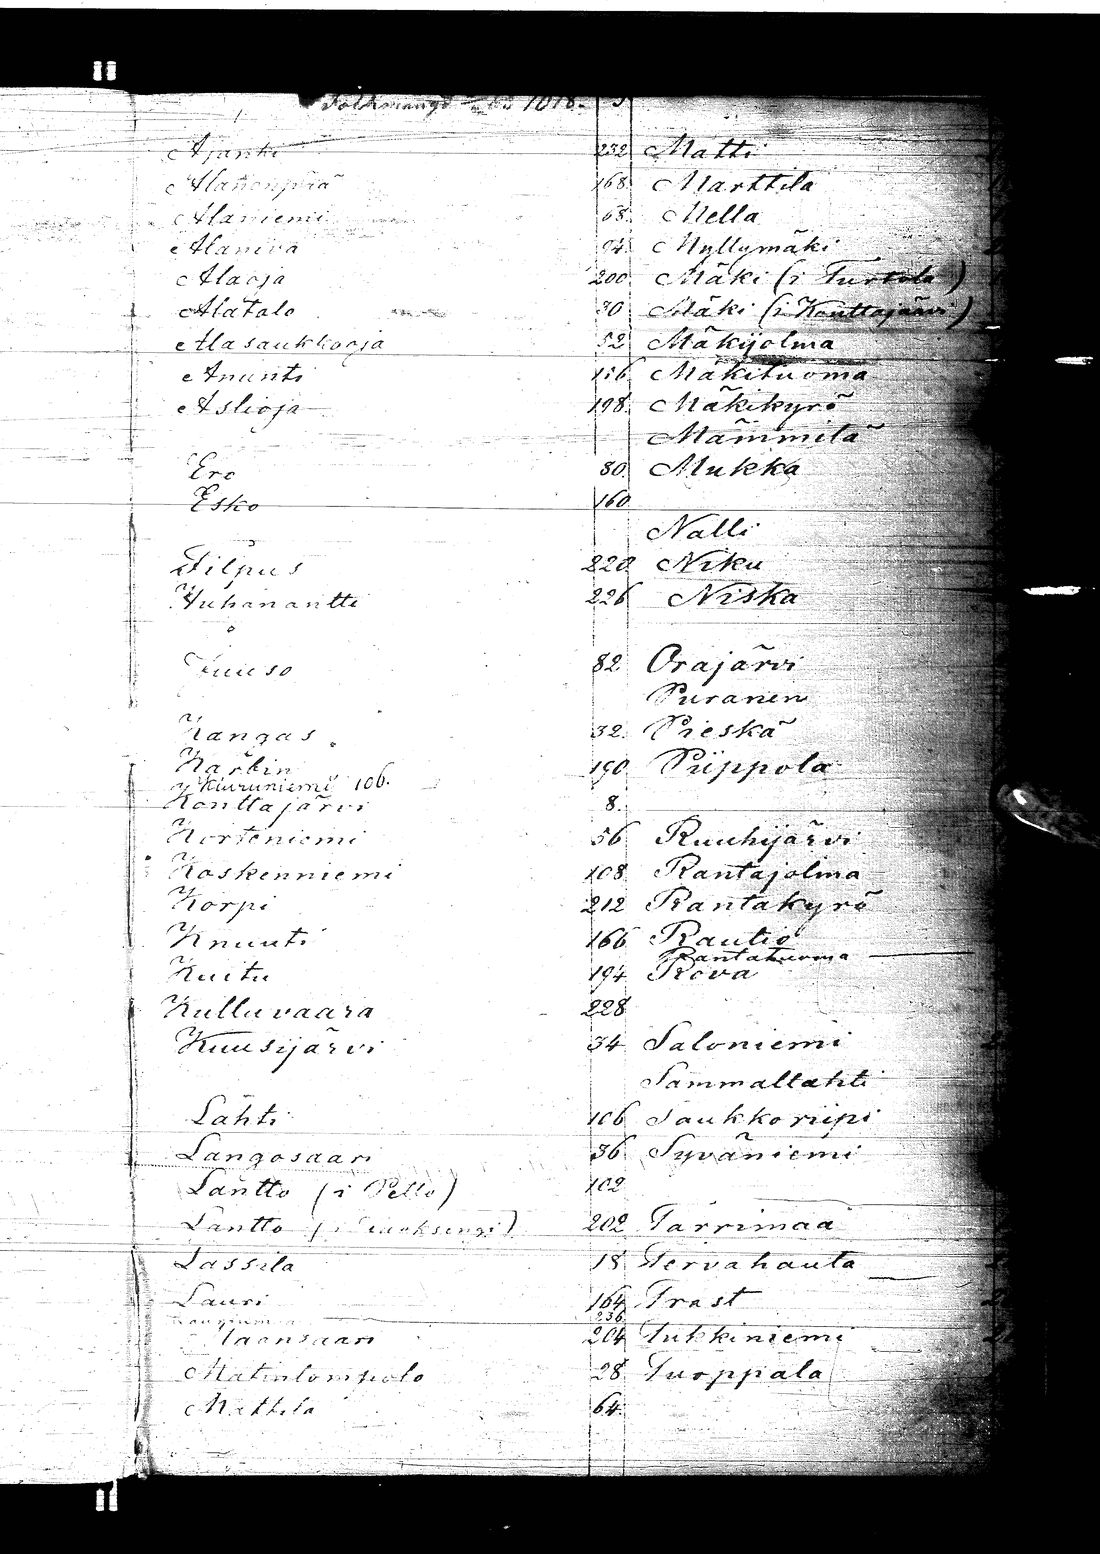 Folkmängd 1818.
Ajanki 232 Matti
Alanenpää 168 Marttila
Alaniemi 68 Mella
Alaniva 94 Myllymäki
Alaoja 200 Mäki (i Turtola)
Alatalo 30 Mäki (i Konttajärvi)
Alasaukkooja 52 Mäkijolma
Ananti 116 Mäkituoma
Aslioja 198 Mäkikyrö
Mämmilä
Ero 80 Mukka
Esko 160
Nalli
Filpus 220 Niku
Juhanantti 226 Niska
Juuso 82 Orajärvi
Puranen
Kangas 32 Pieskä
Karbin 190 Piippola
Kiuruniemi 106.
Konttajärvi 8.
Korteniemi 56 Ruuhijärvi
Koskenniemi 108 Rantajolma
Korpi 212 Rantakyrö
Knuuti 166 Rautio
Rantatuoma
Kuitu 194 Rova
Kulluvaara 228
Kuusijärvi 34 Saloniemi
Sammallahti
Lahti 106 Saukkoriipi
Langosaari 36 Syväniemi
Lantto (i Pello) 102
Lantto (i Turtola) 202 Tärrimaa
Lassila 18 Tervahauta
Lauri 164 Trast
236
Naansaari 204 Tukkiniemi
Matinlompolo 28 Turppala
Mattila 64.